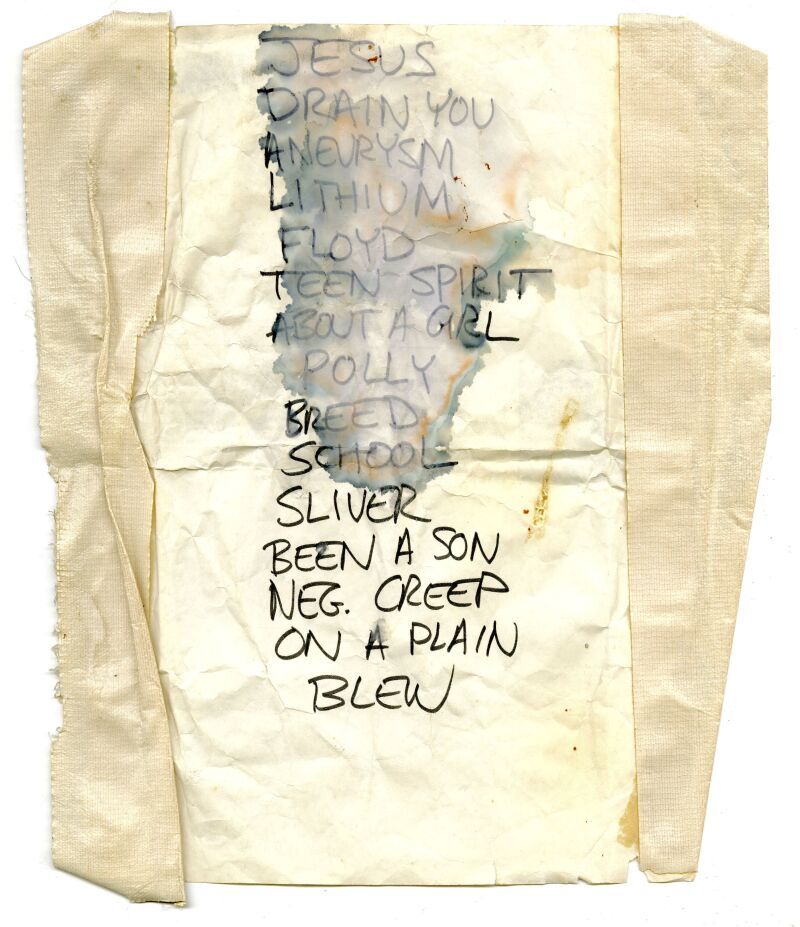 JESUS
DRAIN YOU
ANEURYSM
LITHIUM
FLOYD
TEEN SPIRIT
ABOUT A GIRL
POLLY
BREED
SCHOOL
SLIVER
BEEN A SON
NEG. CREEP
ON A PLAIN
BLEW